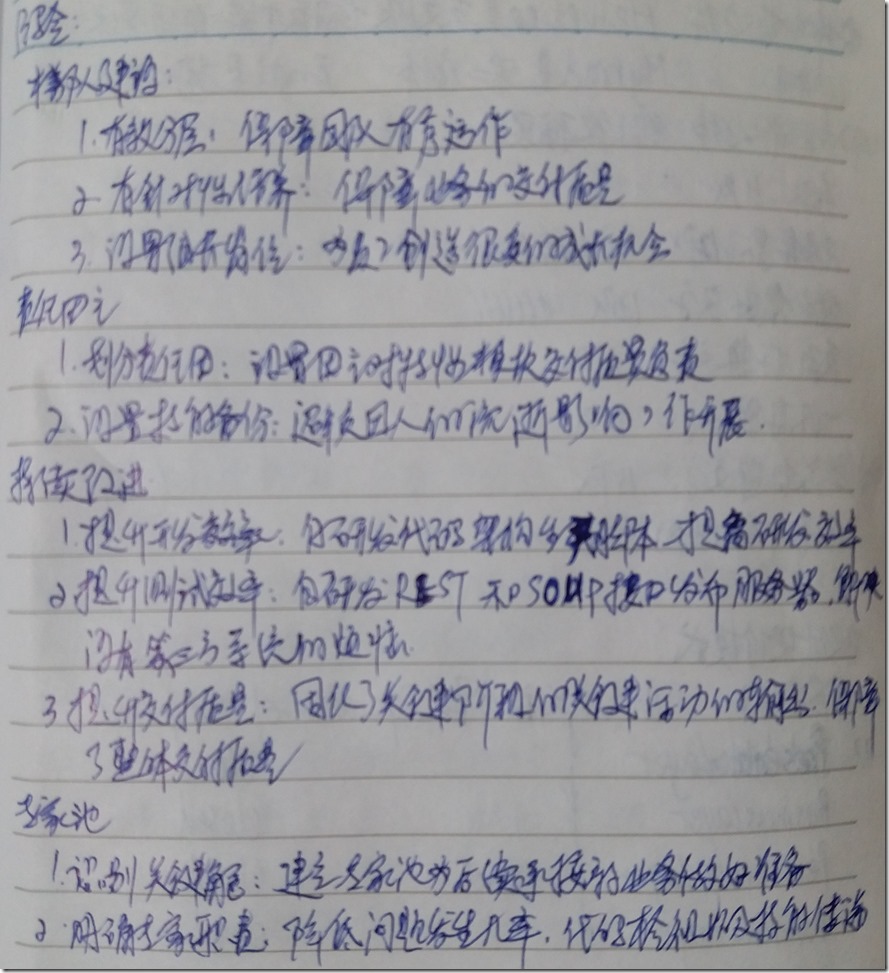 梯队建设:
1. 有效分层: 保障团队有序运作
2. 有针对性培养: 保障业务的交付质量
3. 设置组长岗位: 为员工创造很真的成长机会
责任田主
1. 划分责任田: 设置田主对特性模块交付质量负责
2. 设置技能备份: 避免因人的流逝影响工作开展.
持续改进
1. 提升开发效率: 自研开发代码架构生成脚本 提高研发效率
2 提升测试效率: 自研发REST和SOUP接口发布服务器, 解决
没有第三方系统的烦恼.
3 提升交付质量: 固化了关键阶段的关键活动的输出. 保障
了整体交付质量
专家池
1. 识别关键角色: 建立专家池为后续承接新业务做好准备
2. 明确专家职责: 降低问题发生几率. 代码检视以及技能传递